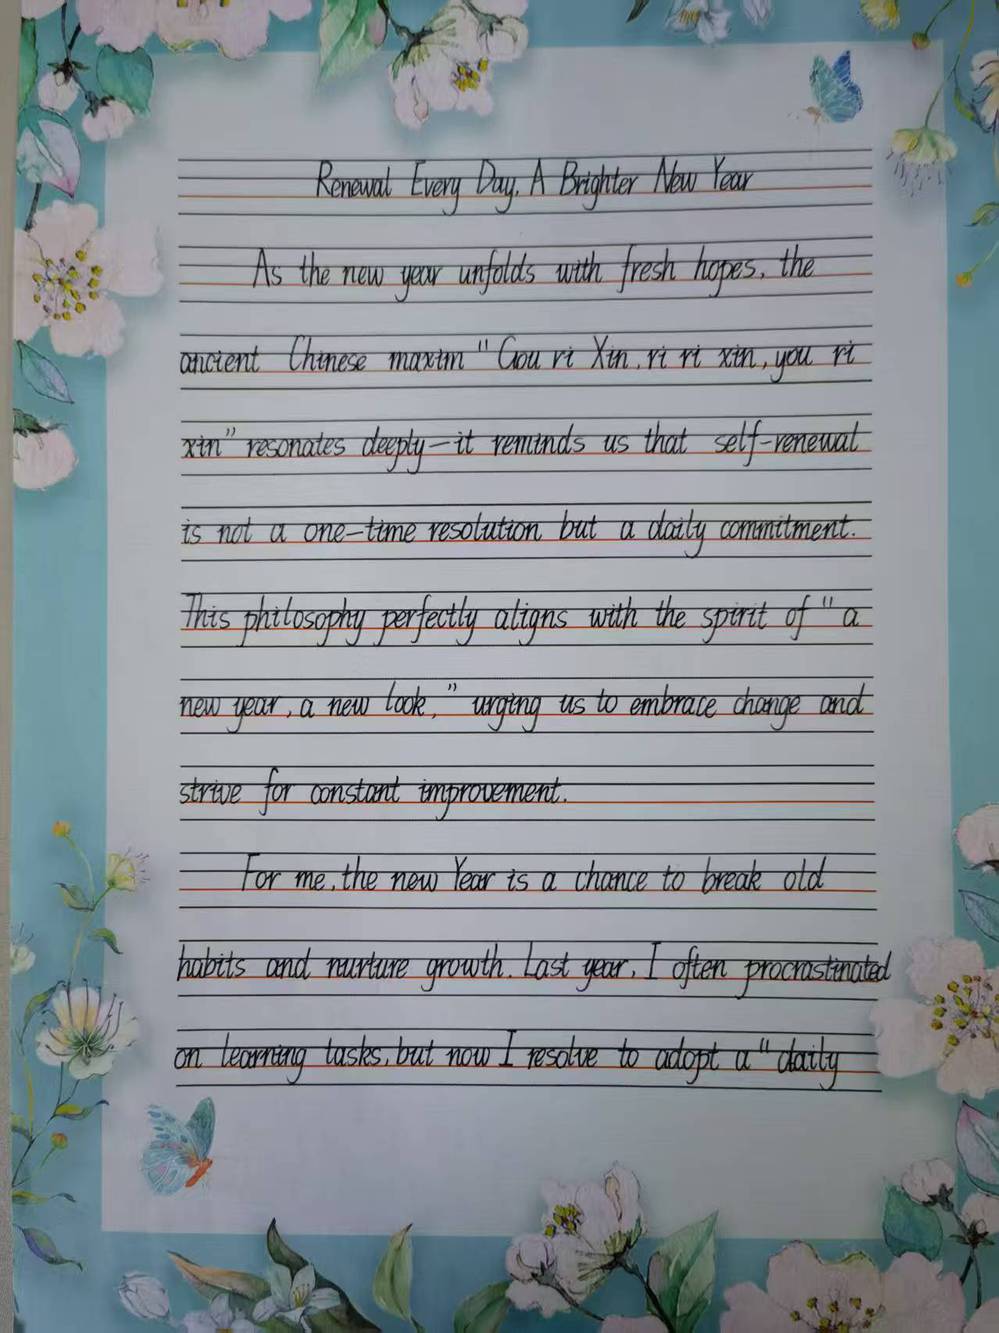 Renewal Every Day, A Brighter New Year
As the new year unfolds with fresh hopes, the
ancient Chinese maxim "Gou ri Xin, ri ri xin, you ri
xin" resonates deeply—it reminds us that self-renewal
is not a one-time resolution but a daily commitment.
This philosophy perfectly aligns with the spirit of "a
new year, a new look," urging us to embrace change and
strive for constant improvement.
For me, the new Year is a chance to break old
habits and nurture growth. Last year, I often procrastinated
on learning tasks, but now I resolve to adopt a "daily